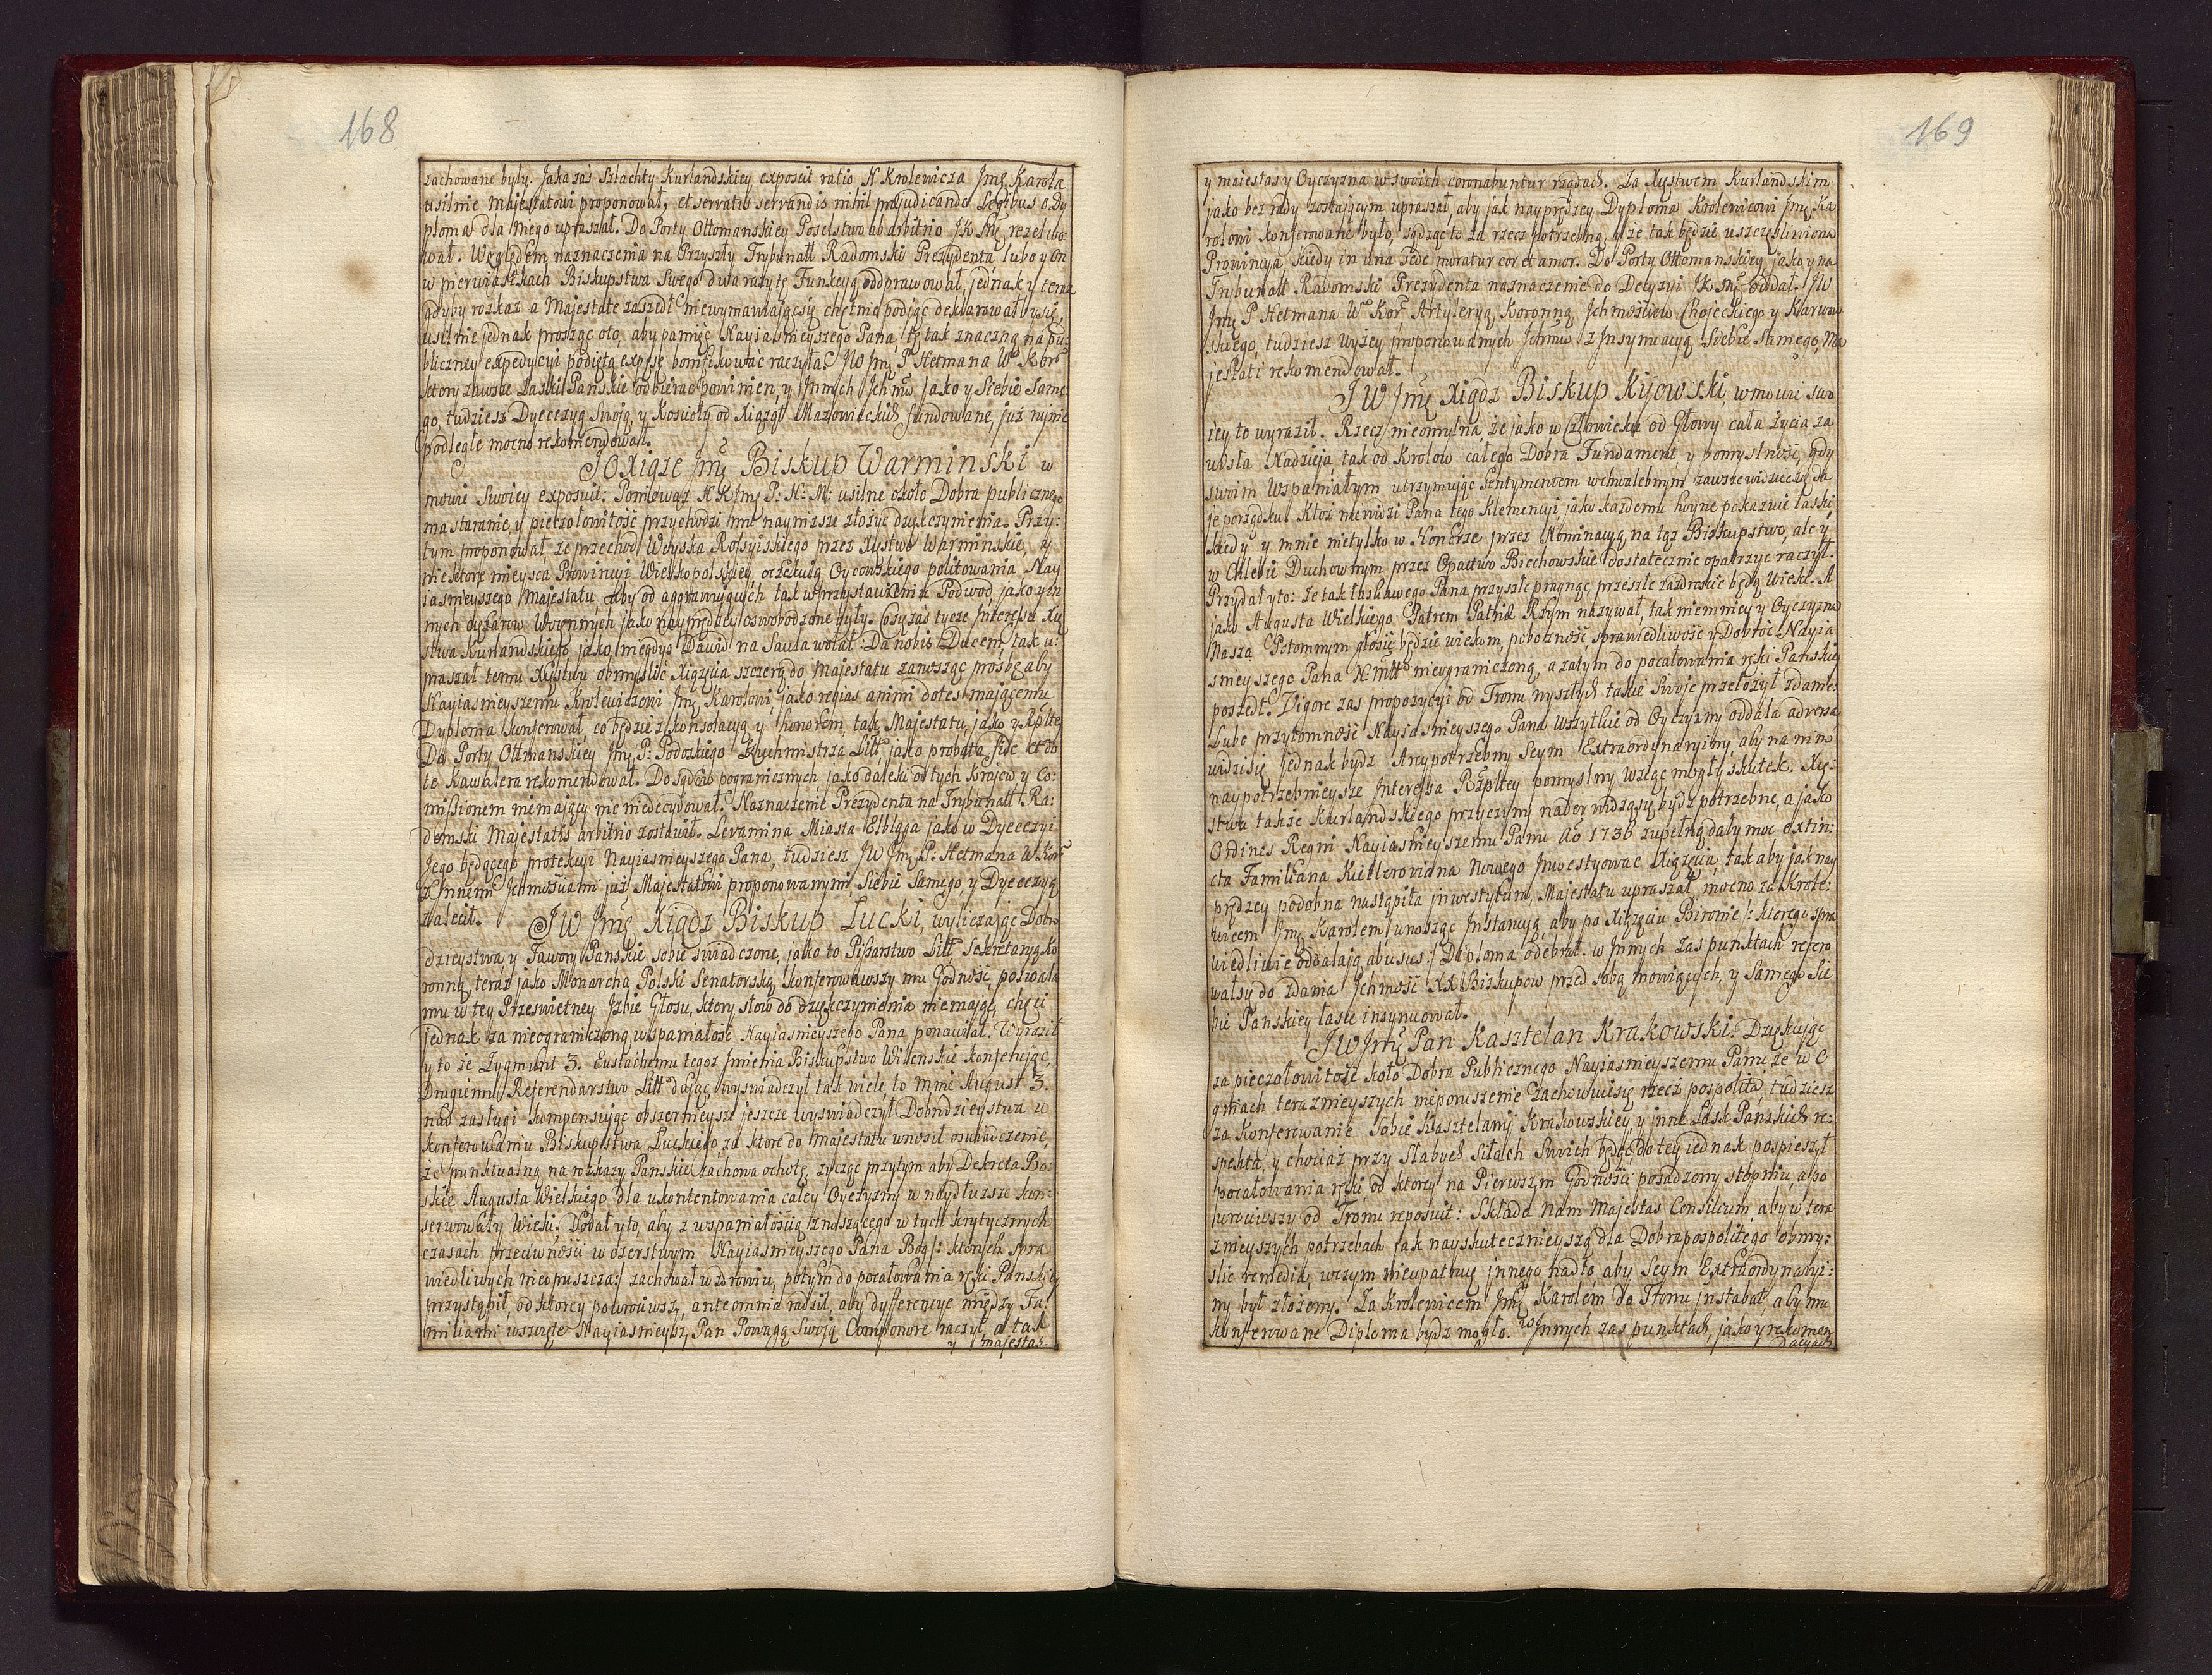 168
zachowane były. Jaka zaś Szlachty Kurlandskiey exposuit ratio N Krolewicza Jmę Karola
usilnie Majestatowi proponował, et servatis servandis nihil præjudicando Legibus o Dy
ploma dla Niego upraszał. Do Porty Ottomanskiey Poselstwo ab arbitrio JK Mę rezolwo:
wał. Względem naznaczenia na Przyszły Trybunałł Radomski Prezydenta lubo y on
w pierwiastkach Biskupstwa Swego dwa razy tę Funkcyą oddprawował, jednak y temu
gdyby rozkaz a Majestate zaszedł niewymawiaiącsię chętnie podjąc deklarował by się,
usilnie jednak prosząc oto, aby pamięć Nayiasnieyszego Pana, tę tak znaczną na pu:
bliczney expedycyi podiętą expęsę bonifikować raczyła. JW Jmę P Hetmana Wo Korō
ktory zawsze Łaski Panskie odbierać powinien, y Jnnych Jchmw jako y Siebie Same
go, tudziesz Dyecezyą Swoją, y Kościoły od Xiążąt Mazowieckich fundowane, już ruinie
podległe mocno rekomendował.
JO Xiąże Jmę Biskup Warminski w
mowie Swoiey exposuit: Poniewąż NKJmę P: N: M: usilne około Dobra publicznego
ma staranie, y pieczołowitość przychodzi mi naynizsze złożyć dzękczynienia. Przy:
tym proponował, że przechod Woyska Rossyiskiego przez Xystwo Warminskie, y
niektore mieysca Prowincyi Wielkopolskiey, oczekuią Oycowskiego politowania Nay
iasnieyszego Majestatu, aby od aggrawuiących tak w przystawieniu Podwod, jako y in
nych ciężarow Woiennych jako nayprędzey oswobodzone były. Cosyzaś tycze Interessu Xię
stwa Kurlandskiego jako niegdys Dawid na Saula wołał: Da nobis Ducem, tak u:
praszał temu Xystwu obmyslić Xiążęcia szczerą do Majestatu zanosząc prosbę aby
Nayiasnieyszemu Krolewiczowi Jmę Karolowi, jako regias animi dotes maiącemu
Dyploma konferował, co będzie z konsolacyą y honorem, tak Majestatu, jako y Rpltey
Do Porty Ottmanskiey Jmę P: Podoskiego Kuchmistrza Littō jako probatæ fidei et do
te Kawalera rekomendował. Do sądow pogranicznych, jako daleki od tych Krajow y Co:
missionem niemaiący nic niedecydował. Naznaczenie Prezydenta na Trybunałł Ra:
domski Majestatis arbitrio zostawił. Levamina Miasta Elbląga jako w Dyecezyi
Jego będącego protekcyi Nayiasnieyszego Pana, tudziesz JW Jmę P: Hetmana W Korō
z Jnnemi Jchmościami już Majestatowi proponowanymi, Siebie Samego, y Dyecezyą
zalecił. JW Jmę Xiądz Biskup Łucki, wyliczając Dobro
dzieystwa, y Fawory Panskie sobie swiadczone, jako to Pisarstwo Littō Sekretaryą Ko
ronną, teraz jako Monarcha Polski Senatorską konferowawszy mu Godność, pozwala
mu w tey Prześwietney Jzbie Głosu, ktory słow do dzękczynienia niemając, chęci
jednak za nieograniczoną wspaniałość Nayiasnieyszego Pana ponawiał. Wyraził
y to że Zygmunt 3. Eustachemu tegoż Jmienia Biskupstwo Wilenskie konferując,
Drugiemu Referendarstwo Littō dając, wyswiadczył, tak wiele to Mnie August 3.
nad zasługi kompensując obszernieysze jeszcze wyświadczył Dobrodzieystwa w
konferowaniu Biskupstwa Łuckiego, za ktore do Majestatu wnosił oswiadczenie,
że punktualną na rozkazy Panskie zachowa ochotę, zycząc przytym aby Dekreta Boz
skie Augusta Wielkiego dla ukontentowania całey Oyczyzny w naydłuzsze kon:
serwowały Wieki. Dodał y to, aby z wspaniałością znoszącego w tych krytycznych
czasach przeciwności w czerstwym Nayiasnieyszego Pana Bog /: ktorych spra
wiedliwych nieopuszcza:/ zachował zdrowiu, potym do pocałowania ręki Panskiey
przystąpił, od ktorey powrociwszy, ante omnia radził, aby dyfferencye między Fa:
miliami wszczęte Nayiasnieyszy Pan Powagą Swoją Componere raczył, a tak
y majestas.
169
y maiestas y Oyczyzna w swoich coronabuntur rządach. Za Xystwem Kurlandskim
jako bez rady zostaiącym upraszał, aby jak nayprędzey Dyploma Krolewicowi Jmę Ka
rolowi konferowane było, sądząc to za rzecz potrzebną, y że tak będzie uszczęsliwiona
Prowincya, kiedy in una sede moratur cor et amor. Do Porty Ottomanskiey jako y na
Trybunałł Radomski Prezydenta naznaczenie do Decyzyi JK Mę oddał. JW
Jmę P Hetmana Wo Korō Artyleryą Koronną Jchmościow Chojeckiego y Karwow
skiego, tudziesz wyżey proponowanych Jchmw z Jnsynuacyą Siebie Samego, Ma
jestati rekomendował.
JW Jmę Xiądz Biskup Kijowski, w mowie swo
iey to wyraził. Rzecz nieomylna, że jako w Człowieku od Głowy cała życia za
wisła Nadzieja, tak od Krolow całego Dobra Fundament, y pomyslność, gdy
swoim Wspaniałym utrzymując Sentymentem wchwalebnym zawsze widzieć się da
je porządku. Ktoż niewidzi Pana tego Klemencyi, jako każdemu hoyne pokazuie łaski,
kiedy y mnie nietylko w Honorze przez Nominacyą na tąż Biskupstwo, ale y
w Chlebie Duchownym przez Opactwo Biechowskie dostatecznie opatrzyć raczył.
Przydał y to: Że tak łaskawego Pana przyszłe pragnąc, przeszłe zazdroscić będą wieki. A
jako Augusta Wielkiego Patrem Patriæ Rzym nazywał, tak niemniey y Oyczyzna
Nasza Potomnym głosić będzie wiekom, pobożność, sprawiedliwość y Dobroć Nayia
snieyszego Pana N: Mttō nieograniczoną, a zatym do pocałowania ręki Panskiey
poszedł. Vigore zaś propozycyi od Tronu wyszłych takie Swoje przełożył zdanie.
Lubo przytomność Nayiasnieyszego Pana wszytkie od Oyczyzny oddala adversa
widzisię jednak bydz Arcypotrzebny Seym Extraordynaryiny, aby na nim
naypotrzebnieysze Interessa Rzpltey pomyslny wziąć mogły skutek. Xię:
stwa także Kurlandskiego przyczyny nader widząsię bydz potrzebne, a jako
Ordines Regni Nayiasnieyszemu Panu Ao 1736 zupełną dały moc extin:
cta Familiana Kietleroviana Nowego Jnwestyować Xiążęcia, tak aby jak nay
prędzey podobna nastąpiła jnwestytura, Majestatu upraszał mocno za Krole:
wicem Jmę Karolem, unosząc Jnstancyą, aby po Xiążęciu Bironie /: ktorego spra
wiedliwie oddalają abusus:/ Diploma odebrał. w Jnnych zaś punktach refero
wałsy do zdania Jchmość XX Biskupow przed sobą mowiących, y Samego Sie
bie Panskiey łasce insynuował.
JW Jmę Pan Kasztelan Krakowski. Dzękując
za pieczołowitość koło Dobra Publicznego Nayiasnieyszemu Panu, że w o
gniach teraznieyszych nieporuszenie zachowuiesię rzecz pospolita, tudziesz
za Konferowanie Sobie Kasztelanij Krakowskiey y jnne Łask Panskich re:
spekta, y chociaż przy Słabych Siłach Swich będąc, do tey iednak pospieszył
pocałowania ręki od ktorey na Pierwszym Godności posadzony stopniu, a po
wrociwszy od Tronu reposuit: Składa Nam Majestas Consilium, aby w tera
znieyszych potrzebach jak nayskutecznieyszą dla Dobra pospolitego obmy:
slić remedia, wczym nieupatruię jnnego nadto, aby Seym Extraordynaryi:
ny był złożony. Za Krolewicem Jmę Karolem do Tronu jnstabat, aby mu
konferowane Diploma bydz mogło. w Jnnych zaś punktach, jako y rekomen
dacyach